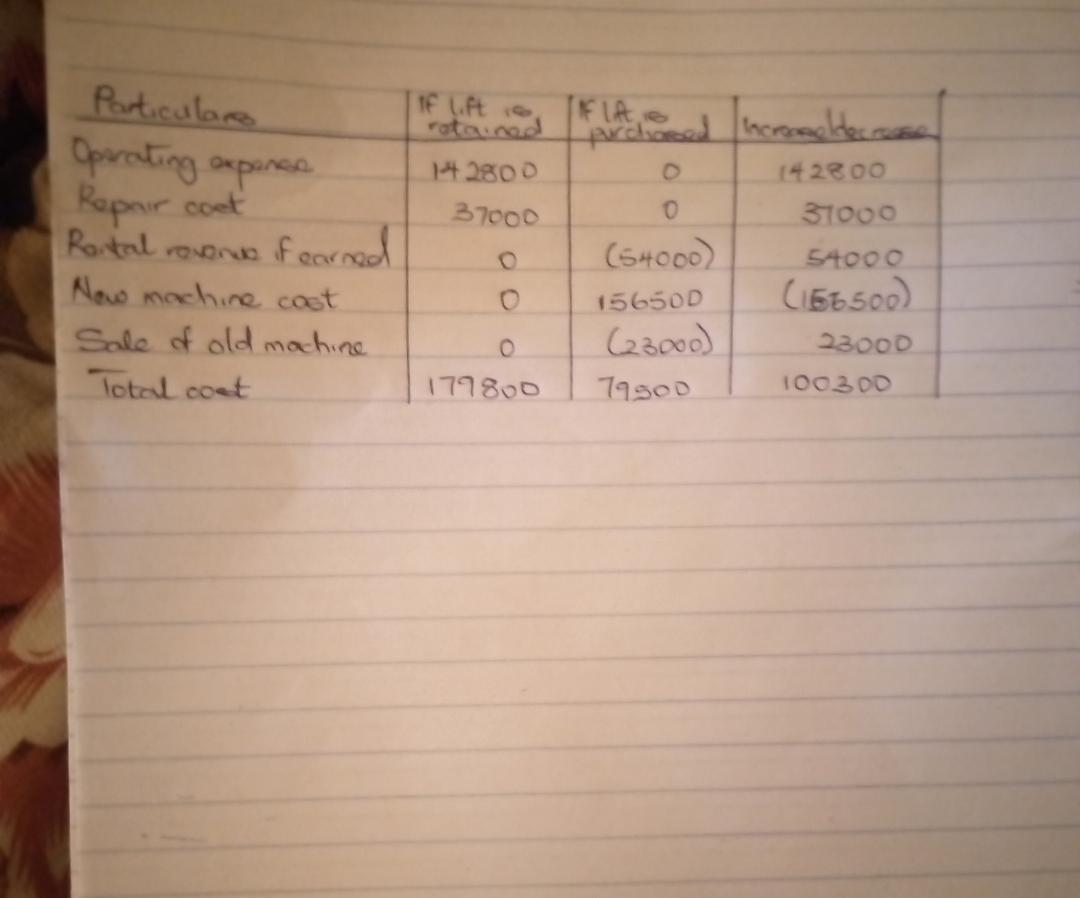 Particulars If lift is retained If lft is purchased Increase/decrease
Operating expense 142800 0 142800
Repair cost 37000 0 37000
Rental revenue if earned 0 (54000) 54000
New machine cost 0 156500 (156500)
Sale of old machine 0 (23000) 23000
Total cost 179800 79500 100300